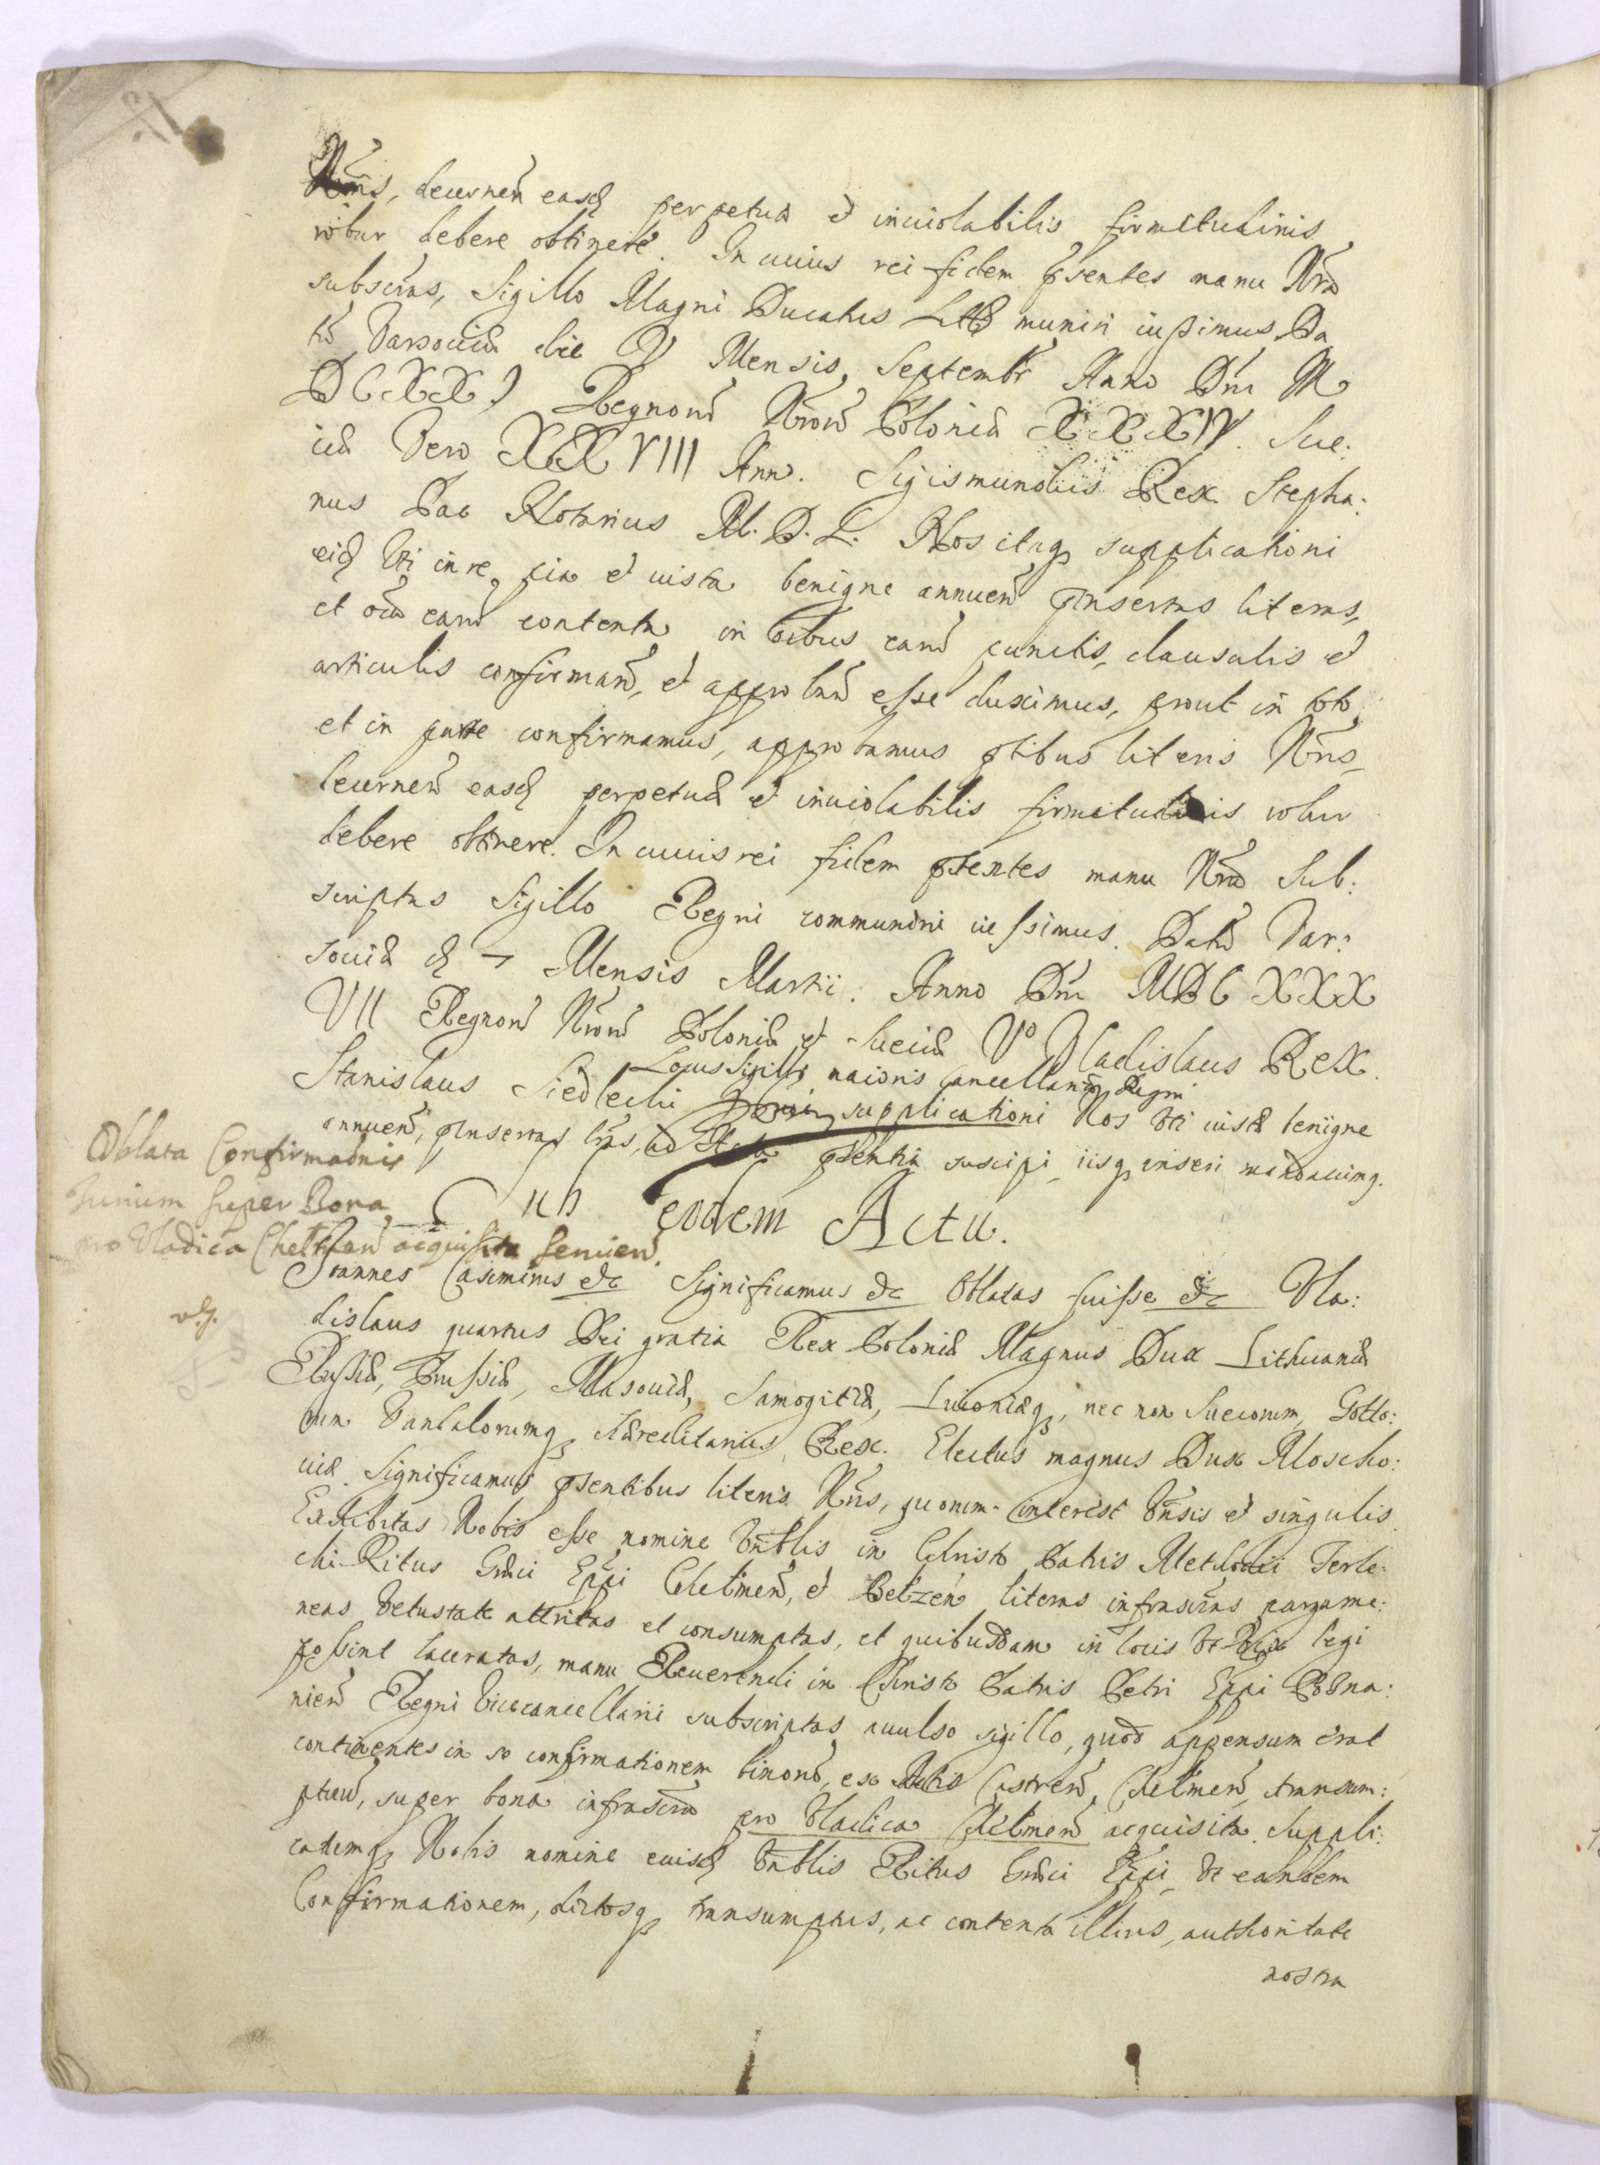 Nr̃is, decernen̄ easq̃ perpetuæ et inuiolabilis firmitudinis
robur debere obtinere. In cuius rei fidem p̃sentes manu Nr̃a
subscr̃as, Sigillo Magni Ducatus Litt̃ muniri iussimus Da
tũ Varsouiæ die V Mensis Septembr̃ Anno Dn̄i M
DCXXI Regnorũ Nr̃orũ Poloniæ XXXIV. Sue:
ciæ Vero XXVIII Ann̄. Sigismundus Rex Stepha:
nus Pac Notarius M. D. L. Nos itaq supplicationi
eiq̃ Vti in re pia et iusta benigne annuen̄ p̃insertas literas,
et oĩa earũ contenta in oĩbus earũ punctis, clausulis et
articulis confirmañ, et approbañ esse duximus, prout in toto
et in parte confirmamus, approbamus p̃ntibus literis Nr̃is
decernen̄ easq̃ perpetuæ et inuiolabilis firmitudinis robur
debere obtinere. In cuius rei fidem p̃sentes manu Nr̃a Sub:
scriptas Sigillo Regni communiri iussimus. Datũ Var:
souiæ Mensis Martii. Anno Dn̄i MDCXXX
VII Regnorũ Nr̃orũ Poloniæ et Sueciæ Vº Vladislaus Rex.
Locus Sigilli maioris Cancellariæ Regni
Stanislaus Siedlecki supplicationi Nos Vti iustæ benigne
annuen̄, p̃insertas lr̃as, ad Acta p̃sentia suscipi, iisq inseri mandauimq.
Oblata Confirmaõnis
Jurium super Bona
pro Vladica Chelmen̄ acquisita seruien̄.
Sub eodem Actu.
Joannes Casimirus etc Significamus etc Oblatas fuisse etc Vla:
dislaus quartus Dei gratia Rex Poloniæ Magnus Dux Lithuaniæ
Russiæ, Prussiæ, Masouiæ, Samogitiæ, Liuoniæq, nec non Suecorum, Gotto:
rum Vandalorumq Hæreditarius Rex. Electus magnus Dux Moscho:
uiæ. Significamus p̃sentibus literis Nr̃is, quorum interest Vn̄sis et singulis
Exhibitas Nobis esse nomine Vn̄blis in Christo Patris Methodii Terle:
cki Ritus Græci Ep̃pi Chelmen̄, et Belzen̄ literas infrascr̃as pargame:
neas Vetustate attritas et consumptas, et quibusdam in locis Vt Vix legi
possint laceratas, manu Reuerendi in Christo Patris Petri Ep̃pi Posna:
nien̄ Regni Vicecancellarii subscriptas auulso sigillo, quod appensum erat
continentes in se confirmationem binorũ, ex Actis Castren̄ Chelmen̄, transum:
ptuũ, super bona infrascr̃a pro Vladica Chelmen̄ acquisita. Suppli:
catumq Nobis nomine euisq̃ Vn̄blis Ritus Græci Ep̃pi, Vt eandem
Confirmationem, dictosq transumptus, ac contenta illius, authoritate
nostra